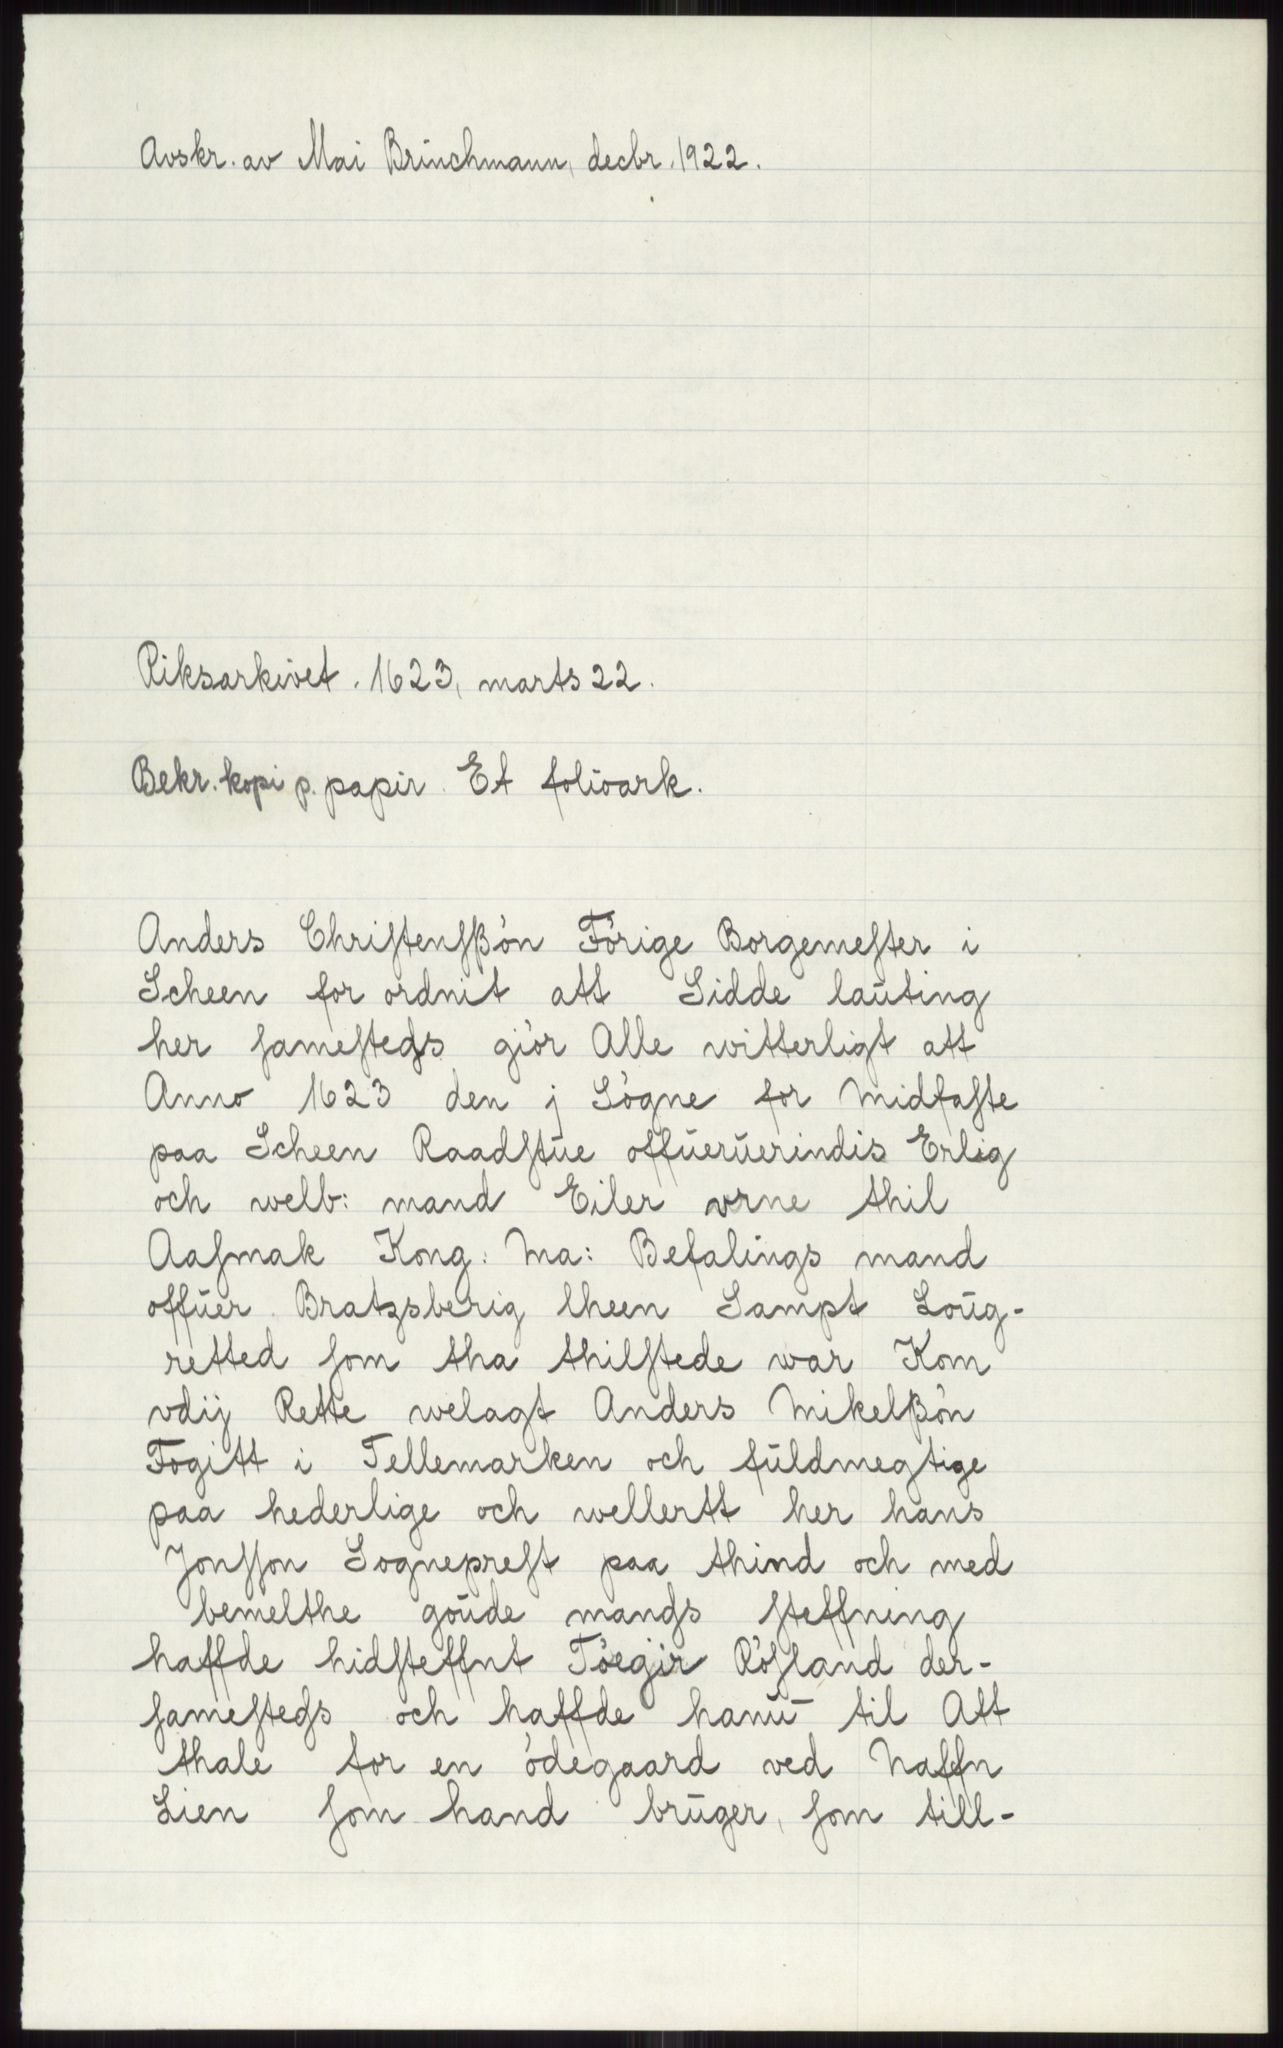 Avskr. av Mai Brinchmann, decbr. 1922.
Riksarkivet. 1623, marts 22.
Bekr. kopi p. papir. Et folioark.
Anders Chriſtenſßön Förige Borgemeſter i
Scheen for ordnit att Sidde lauting
her ſameſtedſ giör Alle witterligt att
Anno 1623 den j Sögne for Midfaſte
paa Scheen Raadſtue offueruerindis Erlig
och welb: mand Eiler vrne thil
Aaſmak Kong: Ma: Befalings mand
offuer Bratzsberig lheen Sampt Loug-
retted ſom tha thilſtede war Kom
vdij Rette welagt Anders Mikelßön
Fogitt i Tellemarken och fuldmegtige
paa hederlige och wellertt her hans
Jonſſon Sognepreſt paa thind och med
bemelthe goude mandſ ſteffning
haffde hidſteffnt Töegir Röſland der-
ſameſtedſ och haffde hanū til Att
thale for en ödegaard ved Naffn
Lien ſom hand bruger, ſom till-